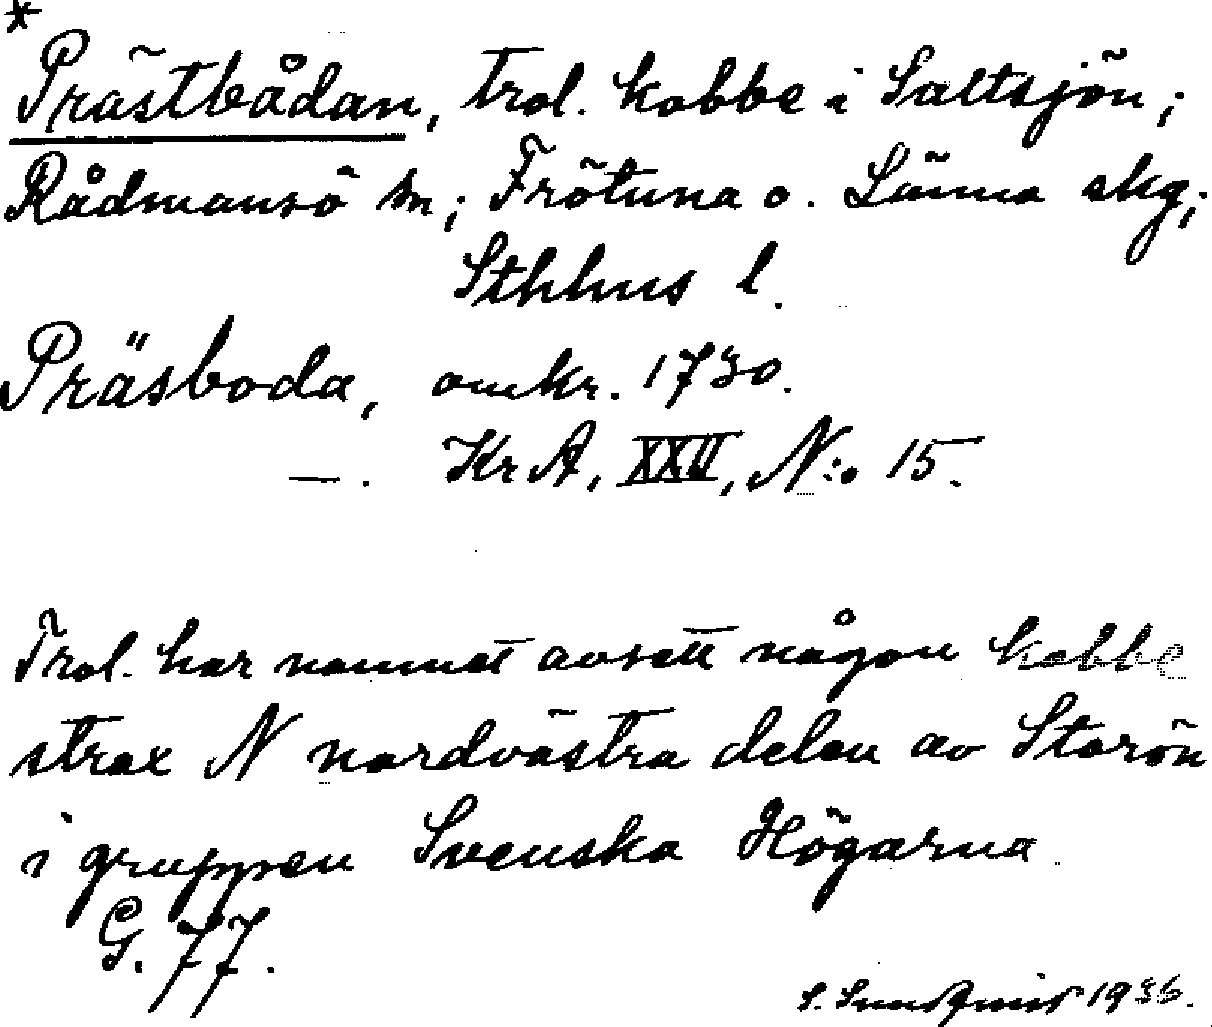 *
Prästbådan, trol. kobbe i Saltsjön;
Rådmansö sn; Frötuna o. Länna skg;
Sthlms l.
Präsboda, omkr. 1730.
—. KrA, XXII, N:o 15.
Trol. har namnet avsett någon kobbe
strax N nordvästra delen av Storön
i gruppen Svenska Högarna.
G. 77.
S. Sundqvist 1936.